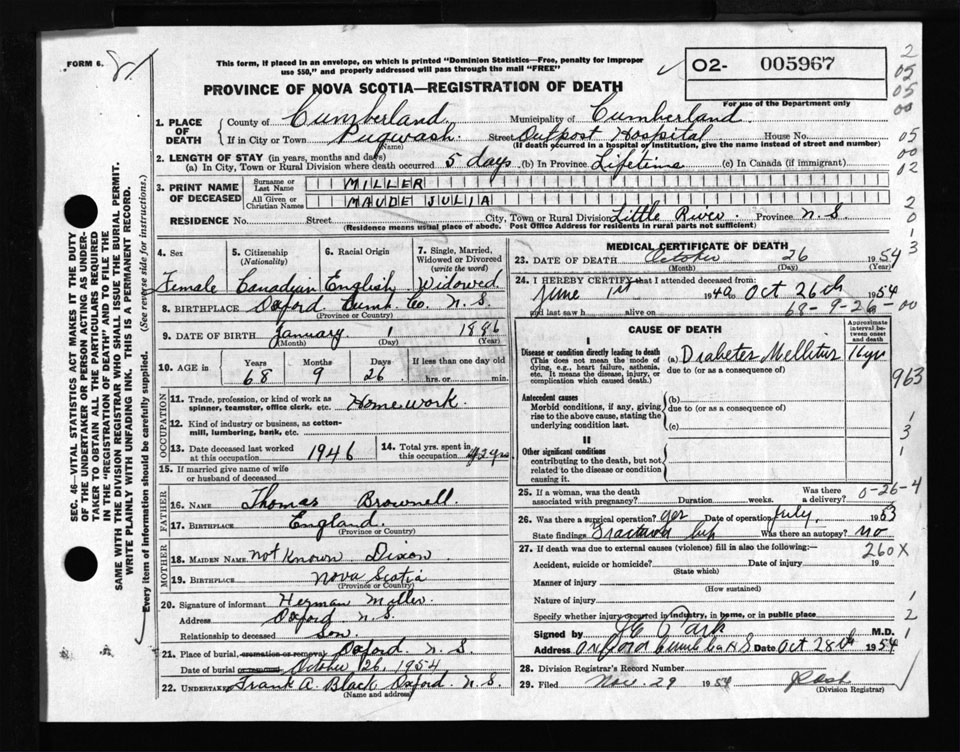 FORM 6.
This form, if placed in an envelope, on which is printed "Dominion Statistics—Free, penalty for improper
use $50," and properly addressed will pass through the mail "FREE"
PROVINCE OF NOVA SCOTIA—REGISTRATION OF DEATH
O2- 005967
For use of the Department only
1. PLACE OF DEATH
County of Cumberland Municipality of Cumberland
If in City or Town Pugwash (Name) Street Outpost Hospital House No.
(If death occurred in a hospital of institution, give the name instead of street and number)
2. LENGTH OF STAY (in years, months and days)
(a) In City, Town or Rural Division where death occurred 5 days (b) In Province Lifetime (c) In Canada (if immigrant)
3. PRINT NAME OF DECEASED
Surname or Last Name MILLER
All Given or Christian Names MAUDE JULIA
RESIDENCE No. Street City, Town or Rural Division Little River Province N.S.
(Residence means usual place of abode. Post Office Address for residents in rural parts not sufficient)
4. Sex
Female
5. Citizenship (Nationality)
Canadian
6. Racial Origin
English
7. Single, Married, Widowed or Divorced (write the word)
Widowed
8. BIRTHPLACE Oxford Cumb. Co. N.S.
(Province or Country)
9. DATE OF BIRTH January 1 1886
(Month) (Day) (Year)
10. AGE in
Years Months Days If less than one day old
68 9 26 hrs. or min.
OCCUPATION
11. Trade, profession, or kind of work as spinner, teamster, office clerk, etc. Homework
12. Kind of industry or business, as cotton-mill, lumbering, bank, etc.
13. Date deceased last worked at this occupation 1946
14. Total yrs. spent in this occupation 42 yrs
15. If married give name of wife or husband of deceased
FATHER
16. NAME Thomas Brownell
17. BIRTHPLACE England
(Province or Country)
MOTHER
18. MAIDEN NAME Not Known Dixon
19. BIRTHPLACE Nova Scotia
(Province or Country)
20. Signature of informant Herman Miller
Address Oxford N.S.
Relationship to deceased son.
21. Place of burial, cremation or removal Oxford N.S.
Date of burial October 26, 1954
22. Undertaker Frank A. Black Oxford N.S.
(Name and address)
MEDICAL CERTIFICATE OF DEATH
23. DATE OF DEATH October 26 1954
(Month) (Day) (Year)
24. I HEREBY CERTIFY that I attended deceased from:
June 1st 1940 Oct 26th 1954
and last saw h alive on 68-9-26-00
CAUSE OF DEATH
Approximate interval between onset and death
I
Disease or condition directly leading to death
(This does not mean the mode of dying, e.g., heart failure, asthenia, etc. It means the disease, injury, or complication which caused death.)
(a) Diabetes Mellitus 16 yrs
due to (or as a consequence of)
Antecedent causes
Morbid conditions, if any, giving rise to the above cause, stating the underlying condition last.
(b)
due to (or as a consequence of)
(c)
II
Other significant conditions
contributing to the death, but not related to the disease or condition causing it.
25. If a woman, was the death associated with pregnancy? Duration weeks. Was there a delivery? 0-26-4
26. Was there a surgical operation? yes Date of operation July, 1953
State findings Fractured hip Was there an autopsy? no
27. If death was due to external causes (violence) fill in also the following:—
260X
Accident, suicide or homicide? Date of injury 19
(State which)
Manner of injury
(How sustained)
Nature of injury
Specify whether injury occurred in industry, in home, or in public place
Signed by Park M.D.
Address Oxford Cumb Co N S Date Oct 28th 1954
28. Division Registrar's Record Number
29. Filed Nov. 29 1954
(Division Registrar)
SEC. 46—VITAL STATISTICS ACT MAKES IT THE DUTY
OF THE UNDERTAKER OR PERSON ACTING AS UNDER-
TAKER TO OBTAIN ALL THE PARTICULARS REQUIRED
IN THE "REGISTRATION OF DEATH" AND TO FILE THE
SAME WITH THE DIVISION REGISTRAR WHO SHALL ISSUE THE BURIAL PERMIT.
WRITE PLAINLY WITH UNFADING INK. THIS IS A PERMANENT RECORD.
Every item of information should be carefully supplied. (See reverse side for instructions.)
2
05
05
00
05
00
02
2
0
1
3
963
1
3
1
2
1